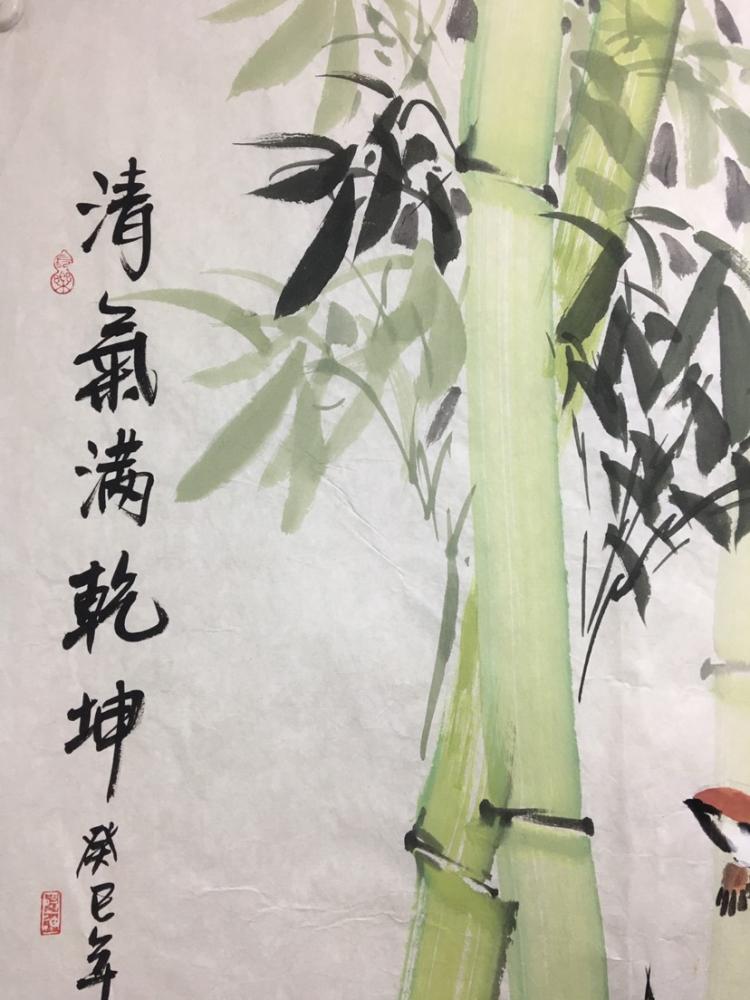 清氣满乾坤
癸巳年